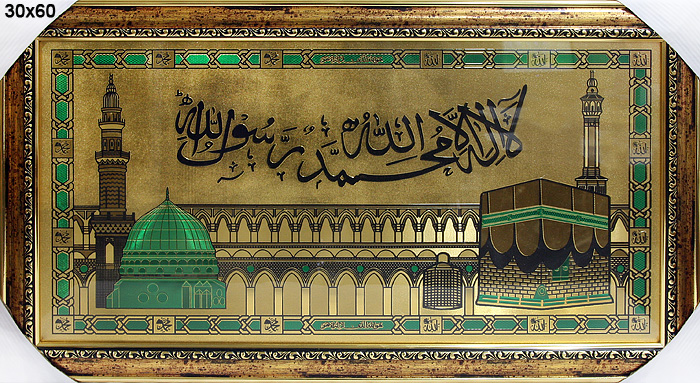 30x60
لا إله إلا الله محمد رسول الله